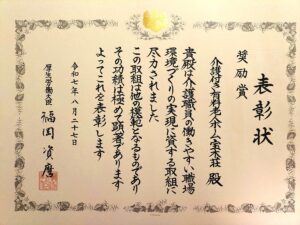 表彰状
奨励賞
介護付き有料老人ホーム宝来荘 殿
貴殿は介護職員の働きやすい職場
環境づくりの実現に資する取組に
尽力されました
この取組は他の模範となるものであり
その功績は極めて顕著であります
よってこれを表彰します
令和七年八月二十七日
厚生労働大臣 福岡 資麿